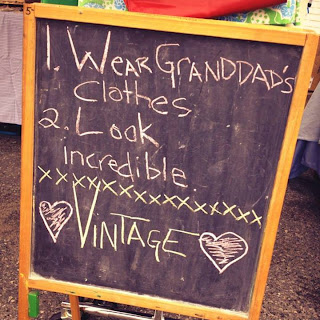 5-
1. Wear Granddad's
Clothes
2. Look
incredible.
xxxxxxxxxxxxxxxxxx
Vintage